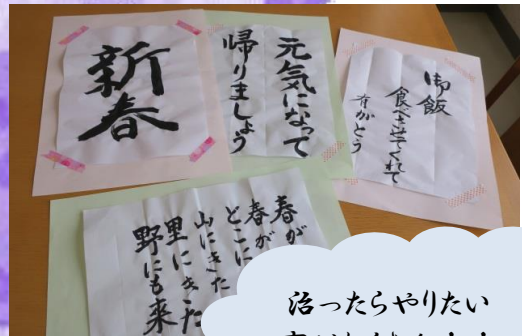 新春
元気になって
帰りましょう
御飯
食べさせてくれて
有がとう
春が
春が
どこに
山にきた
里にきた
野にも来
治ったらやりたい